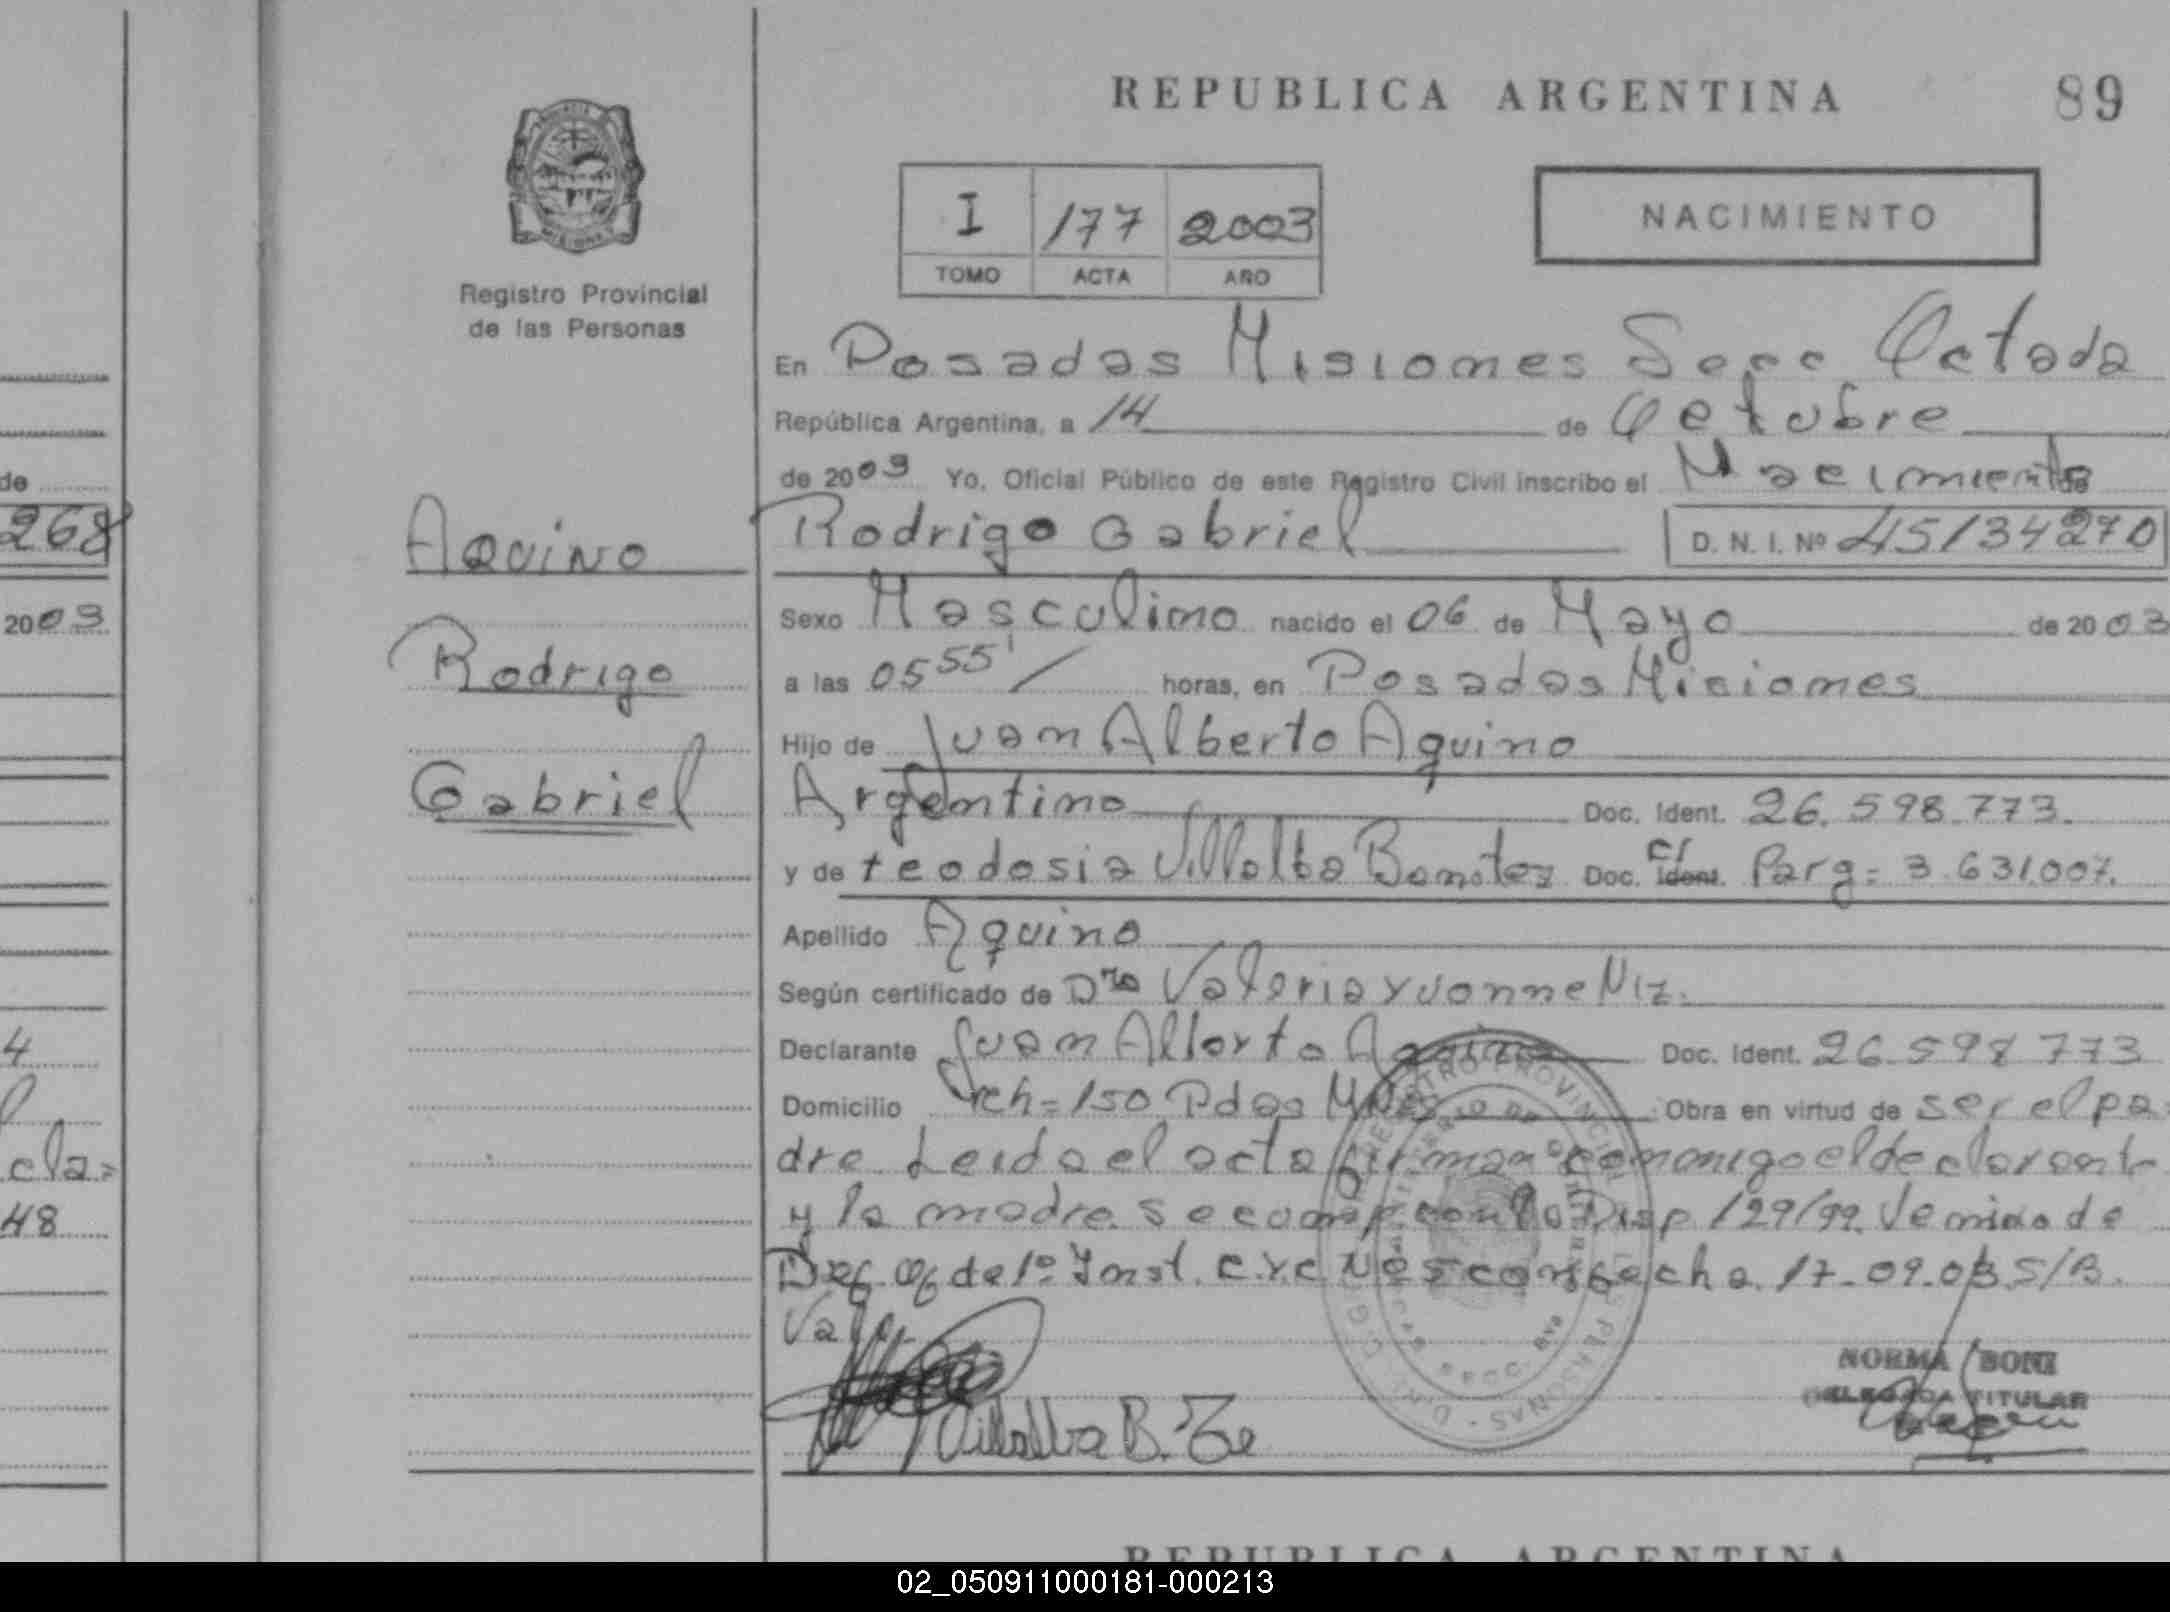 REPUBLICA ARGENTINA
89
I 177 2003
TOMO ACTA AÑO
NACIMIENTO
MISIONES
Registro Provincial
de las Personas
En Posadas Misiones Secc Octava
República Argentina, a 14 de Octubre
de 2003 Yo, Oficial Público de este Registro Civil inscribo el Nacimiento de
Rodrigo Gabriel D. N. I. Nº 45134270
Aquino
Rodrigo
Gabriel
Sexo Masculino nacido el 06 de Mayo de 2003
a las 05 55' horas, en Posadas Misiones
Hijo de Juan Alberto Aquino
Argentino Doc. Ident. 26.598.773.
y de teodosia Villalba Benitez Doc. Ident. C/ Parg= 3.631.007.
Apellido Aquino
Según certificado de Dra Valeria Yvonne Niz.
Declarante Juan Alberto Aquino Doc. Ident. 26.598.773
Domicilio ch=150 Pdas Mnes Obra en virtud de ser el pa=
dre. Leida el acta firman conmigo el declarante
y la madre. Se cump. con la Disp 129/99. Venido de
Def. Of. de 1º Inst. con fecha 17-09.03 S/B.
Vale.
Villalba B. Te
REGISTRO PROVINCIAL DE LAS PERSONAS
SECC. 8va
NORMA BONI
DELEGADA TITULAR
de
268
2003
4
cla=
48
REPUBLICA ARGENTINA
02_050911000181-000213